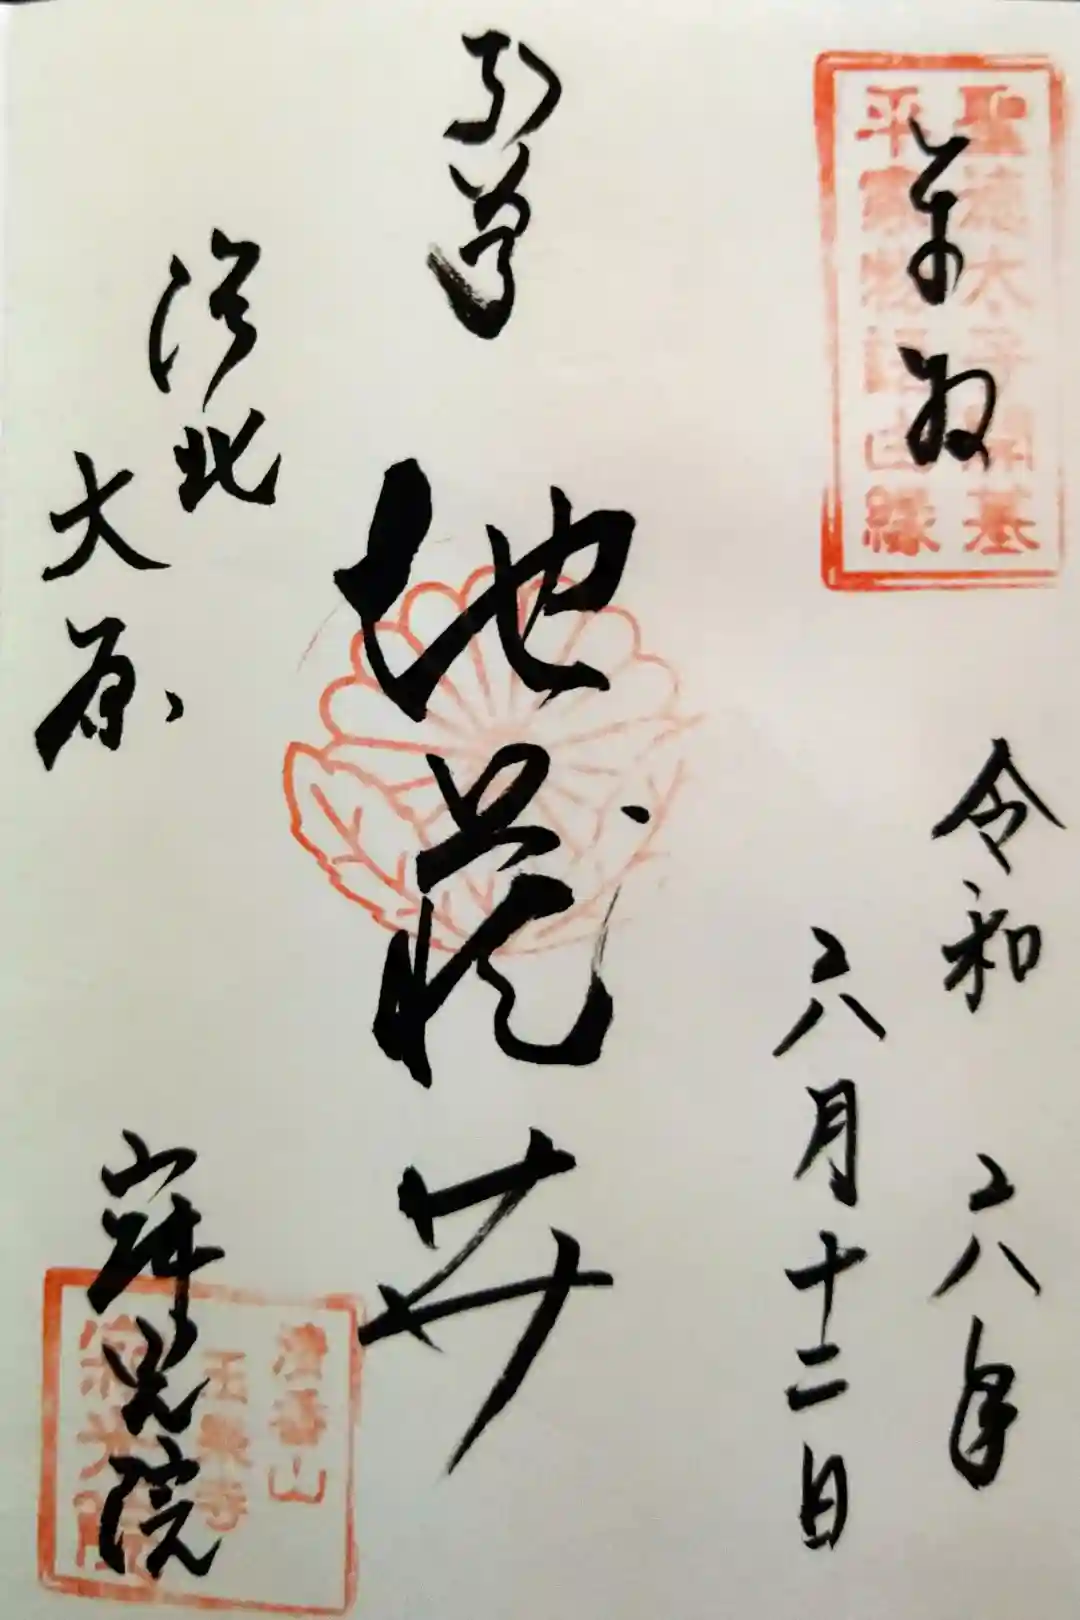 聖徳太子開基
平家物語由縁
奉拝
令和 六年
六月十二日
本尊
地蔵井
洛北
大原
寂光院
清香山
玉泉寺
寂光院